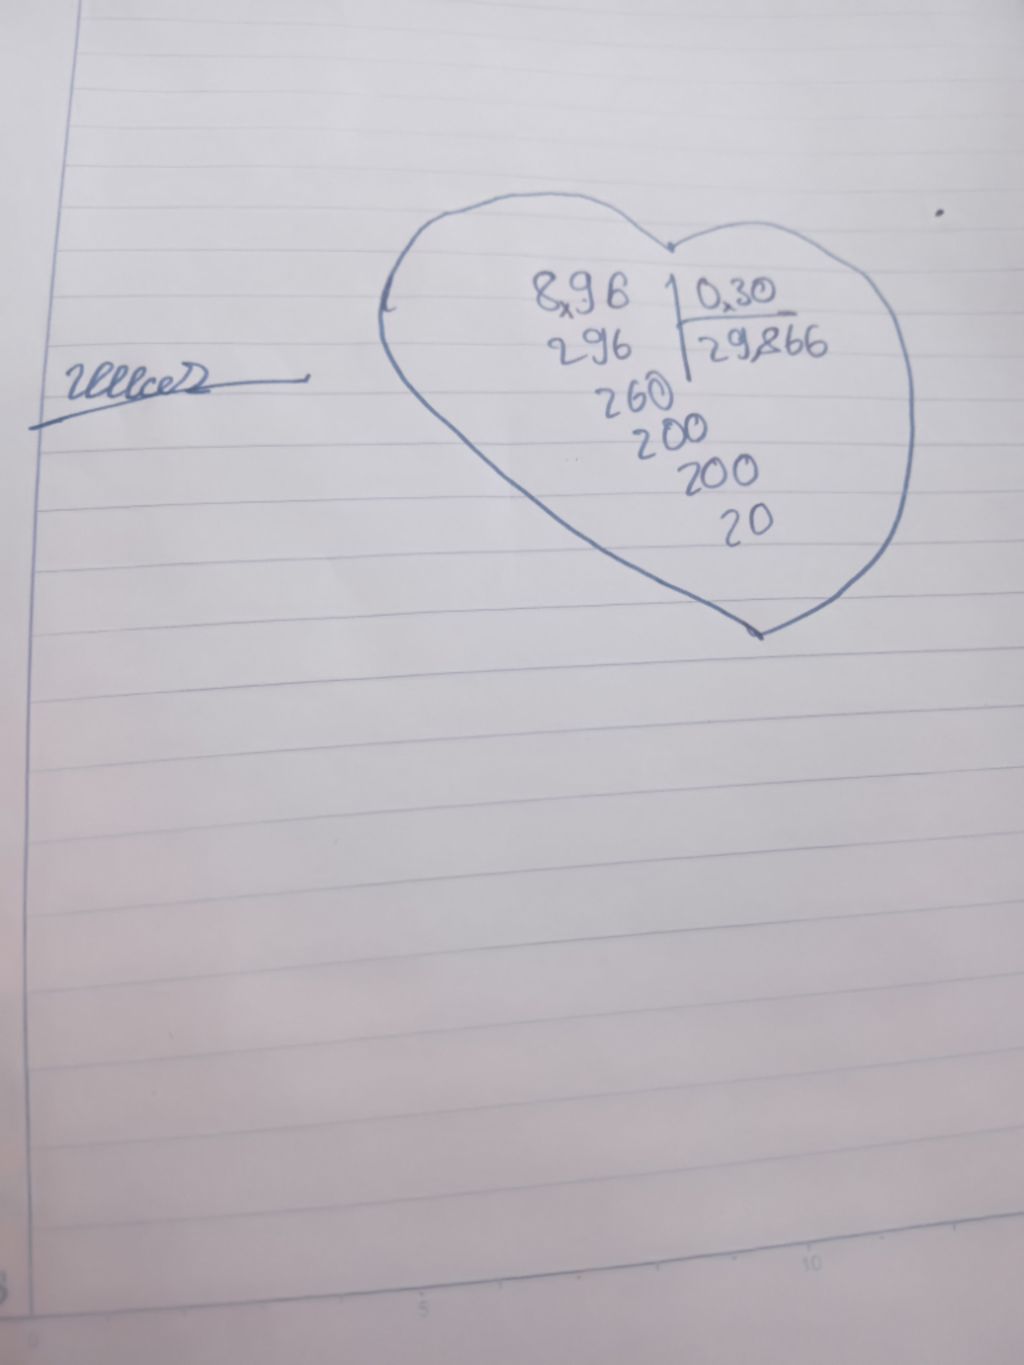 8,96 0,30
296 29,866
260
200
200
20
10
5
0